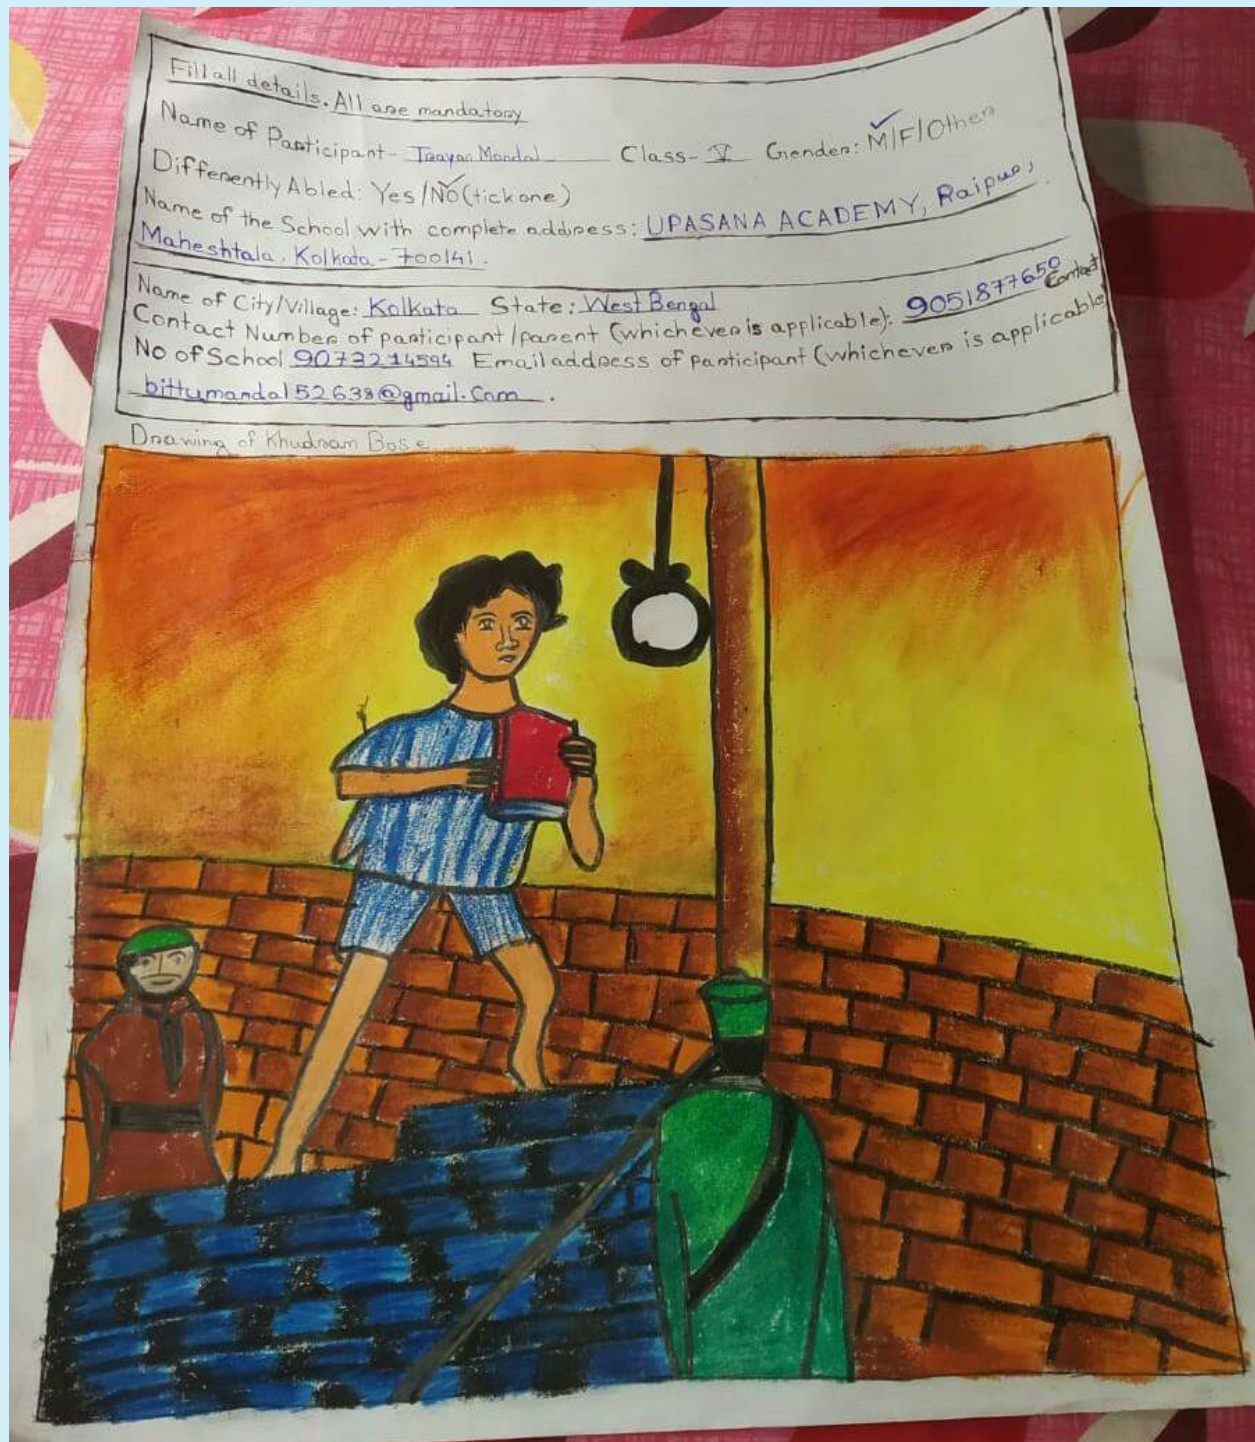 Fill all details. All are mandatory
Name of Participant- Taayan Mandal Class- V Gender: M/F/Other
Differently Abled: Yes/No (tick one)
Name of the School with complete address: UPASANA ACADEMY, Raipur,
Maheshtala, Kolkata - 700141.
Name of City/Village: Kolkata State: West Bengal
Contact Number of participant/parent (whichever is applicable): 9051877650 Contact
No of School 9073214594 Email address of participant (whichever is applicable)
bittumandal52638@gmail.com.
Drawing of Khudiram Bose